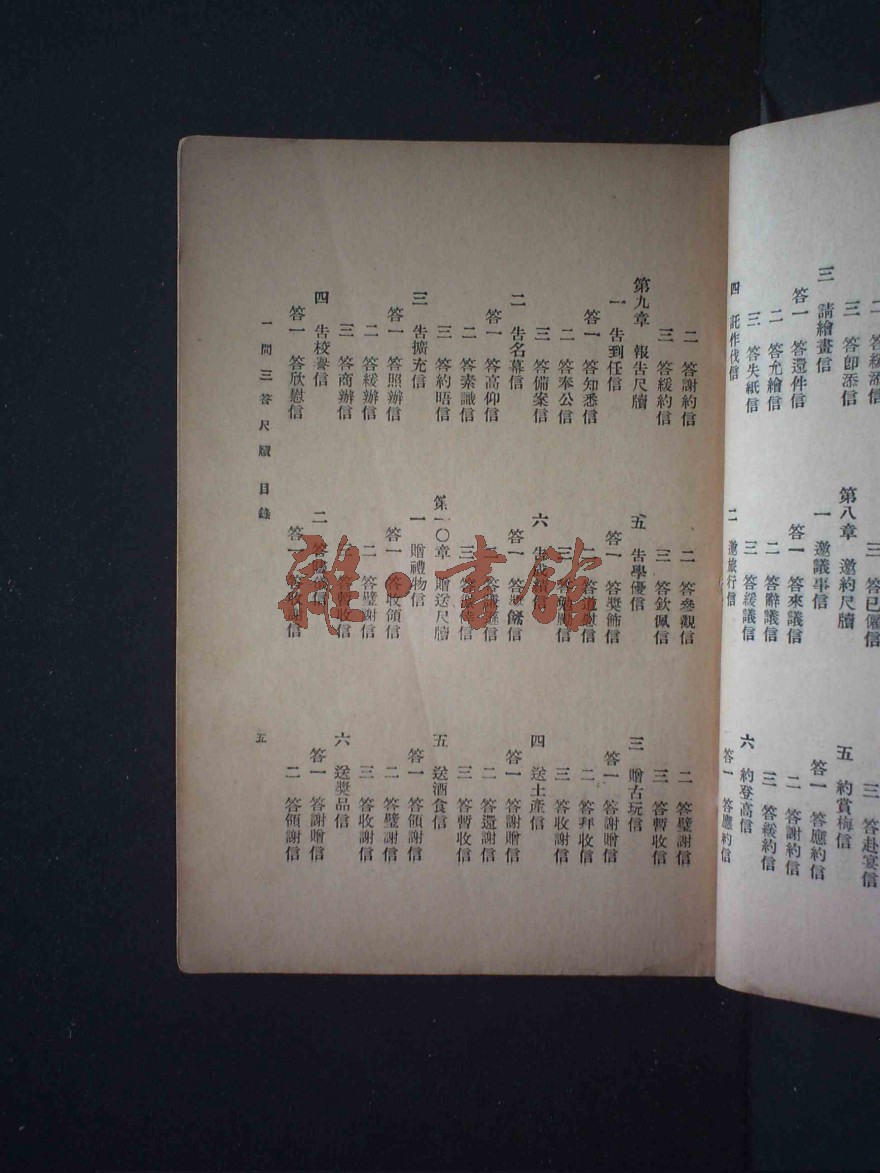 二 答緩添信
三 答卽添信
三 請繪畫信
答一 答還件信
二 答允繪信
三 答失紙信
四 託作伐信
三 答已信
第八章 邀約尺牘
一 邀議事信
答一 答來議信
二 答辭議信
三 答緩議信
二 邀旅行信
三 答赴宴信
五 約賞梅信
答一 答應約信
二 答謝約信
三 答緩約信
六 約登高信
答一 答應約信
二 答謝約信
三 答緩約信
第九章 報告尺牘
一 告到任信
答一 答知悉信
二 答奉公信
三 答備案信
二 告名幕信
答一 答高仰信
二 答素識信
三 答約晤信
三 告擴充信
答一 答照辦信
二 答緩辦信
三 答商辦信
四 告校譽信
答一 答欣慰信
二 答參觀信
三 答欽佩信
五 告學優信
答一 答獎飾信
二 答慰信
三 答信
六 告成績信
答一 答信
二 答
三 答
第一〇章 贈送尺牘
一 贈禮物信
答一 答收領信
二 答璧謝信
三 答暫收信
二 信
答一 答收謝信
二 答璧謝信
三 答暫收信
三 贈古玩信
答一 答謝贈信
二 答拜收信
三 答收謝信
四 送土產信
答一 答謝贈信
二 答還謝信
三 答暫收信
五 送酒食信
答一 答領謝信
二 答璧謝信
三 答收謝信
六 送獎品信
答一 答謝贈信
二 答領謝信
一問三答尺牘 目錄
五
雅·書館